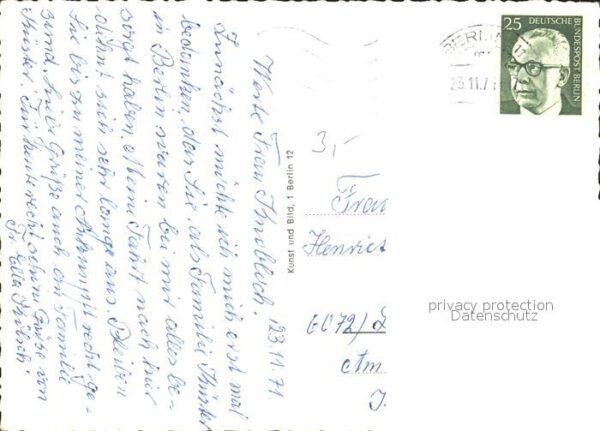 Werte Frau Knobloch. 23.11.71
Zunächst möchte ich mich erst mal
bedanken, das Sie als Familie Küster
in Berlin waren bei mir alles be-
sorgt haben. Meine Fahrt nach hier
dehnt sich sehr lange aus. Bleiben
Sie bis zu meiner Ankunft recht ge-
sund. Liebe Grüße auch an Familie
Küster. Für heute recht schöne Grüße von
Fr. Ella
Kunst und Bild, 1 Berlin 12
3,-
BERLIN
23.11.7
25
DEUTSCHE
BUNDESPOST BERLIN
Frau
Henriet
6072/
Am
privacy protection
Datenschutz